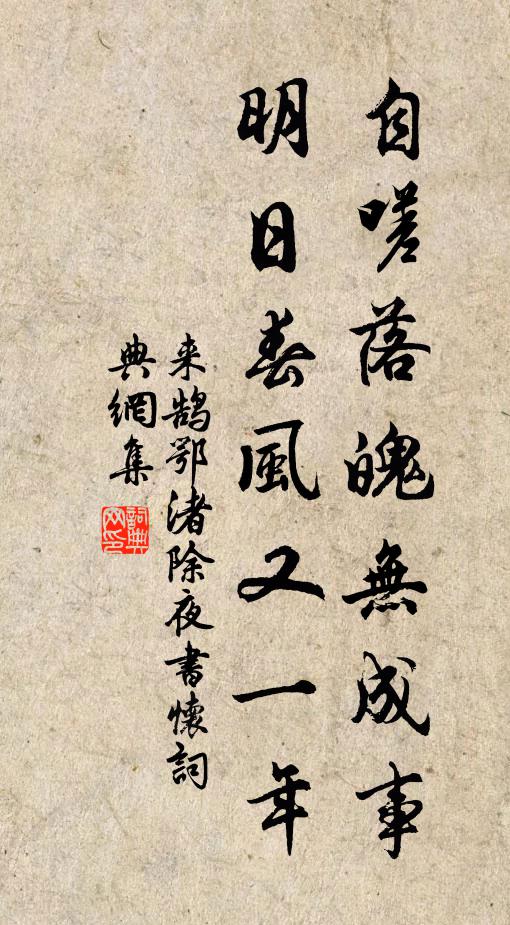 自嗟落魄無成事
明日春風又一年
来鹄鄂渚除夜書懷詞
典網集
詞典网印